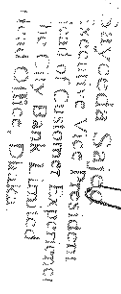 Sayeeda Sajeda
Executive Vice President
Head of Customer Experience
The City Bank Limited
Head Office, Dhaka.